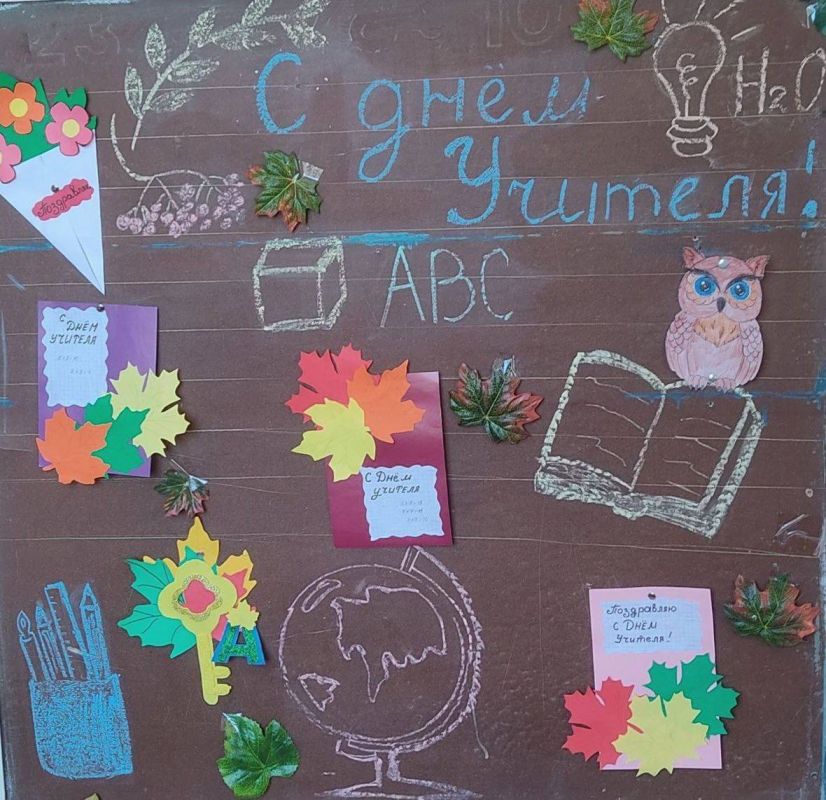 С днём
Учителя!
H2O
Поздравляю
ABC
С
Днём
учителя
С Днём
учителя
Поздравляю
с Днём
Учителя!
А